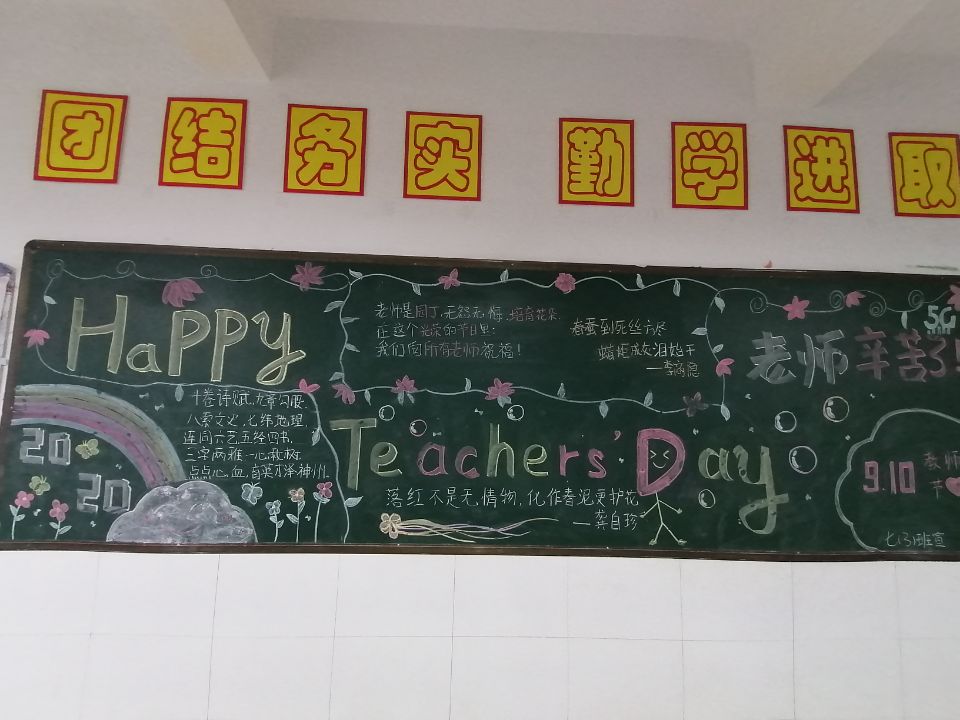 团结务实 勤学进取
Happy
老师是园丁,无怨无悔,培育花朵.
在这个光荣的节日里:
我们向所有老师祝福!
春蚕到死丝方尽
蜡炬成灰泪始干
—李商隐
5G
老师辛苦了!
十卷诗赋,九章勾股.
八索文史,七纬地理
连同六艺五经四书.
三字两雅一心教树
点点心血,育英才泽神州.
2020
Teachers' Day
落红不是无情物,化作春泥更护花
—龚自珍
9.10
教师节
七(3)班宣